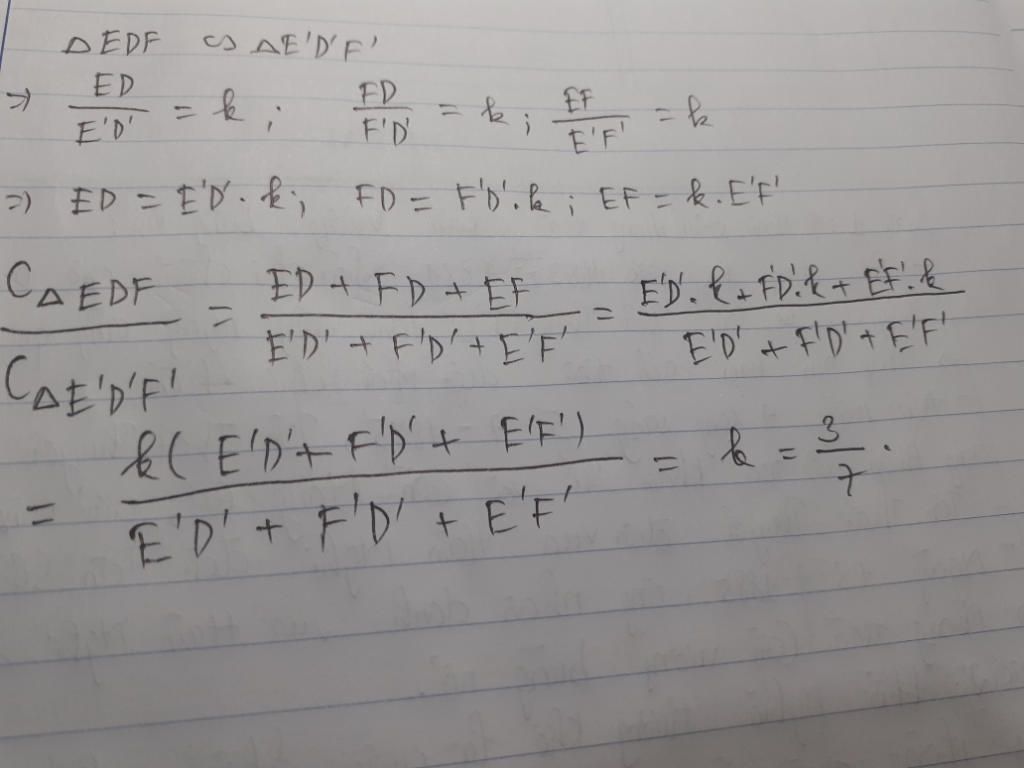 △EDF ∽ △E'D'F'
⇒ ED/E'D' = k ; FD/F'D' = k ; EF/E'F' = k
⇒ ED = E'D' . k ; FD = F'D' . k ; EF = k . E'F'
C△EDF / C△E'D'F' = (ED + FD + EF) / (E'D' + F'D' + E'F') = (E'D' . k + F'D' . k + E'F' . k) / (E'D' + F'D' + E'F')
= k( E'D' + F'D' + E'F') / (E'D' + F'D' + E'F') = k = 3/7 .